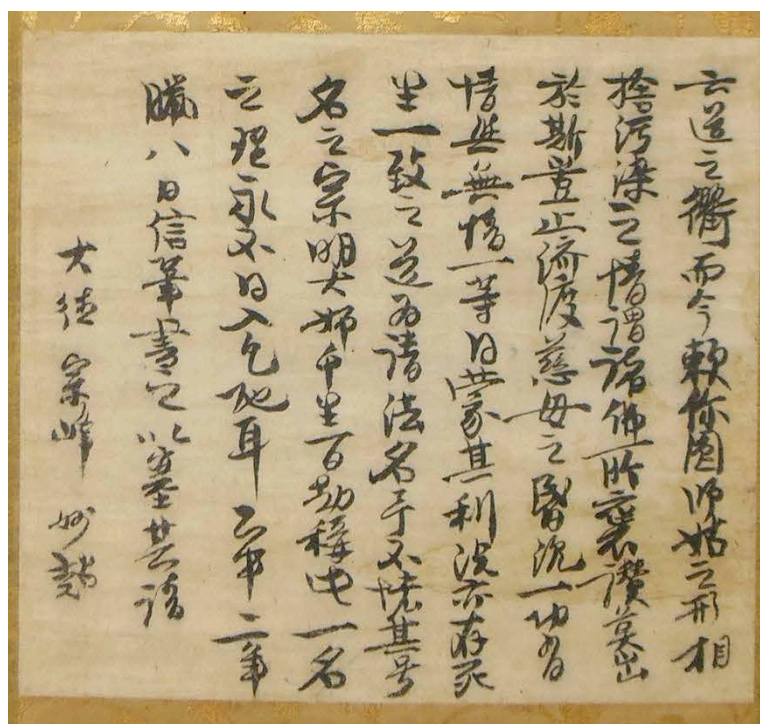 云道之衢而今頼你圓師姑之形相
捨汚染之情謂諸佛所褒讃莫出
於斯豈止済渡慈母之昏沉一切有
情無情一等蒙其利済亦存死
生一致之道為請法名予不其号
名之宗明大姉千生百劫称此一名
之理永不入地耳二年
臘八日信筆書之以塞其請
大徳 宗峰 妙超